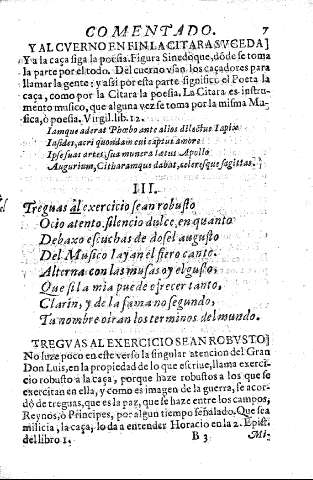 COMENTADO. 7
Y AL CVERNO EN FIN LA CITARA SVCEDA]
Y a la caça siga la poesia. Figura Sinedoque, dōde se toma
la parte por el todo. Del cuerno vsan los caçadores para
llamar la gente: y assi por esta parte significò el Poeta la
caça, como por la Citara la poesia. La Citara es instru-
mento musico, que alguna vez se toma por la misma Mu-
sica, ò poesia. Virgil. lib. 12.
Iamque aderat Phœbo ante alios dilectus Iapix
Iasides, acri quondam cui captus amore
Ipse suas artes, sua munera lætus Apollo
Augurium, Citharamque dabat, celeresque sagittas.
III.
Treguas al exercicio sean robusto
Ocio atento, silencio dulce, en quanto
Debaxo escuchas de dosel augusto
Del Musico Iayan el fiero canto.
Alterna con las musas oy el gusto,
Que si la mia puede ofrecer tanto,
Clarin, y de la fama no segundo,
Tu nombre oiran los terminos del mundo.
TREGVAS AL EXERCICIO SEAN ROBVSTO]
No luze poco en este verso la singular atencion del Gran
Don Luis, en la propiedad de lo que escriue, llama exerci-
cio robusto a la caça, porque haze robustos a los que se
exercitan en ella, y como es imagen de la guerra, se acor-
dò de treguas, que es la paz, que se haze entre los campos,
Reynos, ò Principes, por algun tiempo señalado. Que sea
milicia, la caça, lo da a entender Horacio en la 2. Epist.
del libro 1. B 3 Mi-